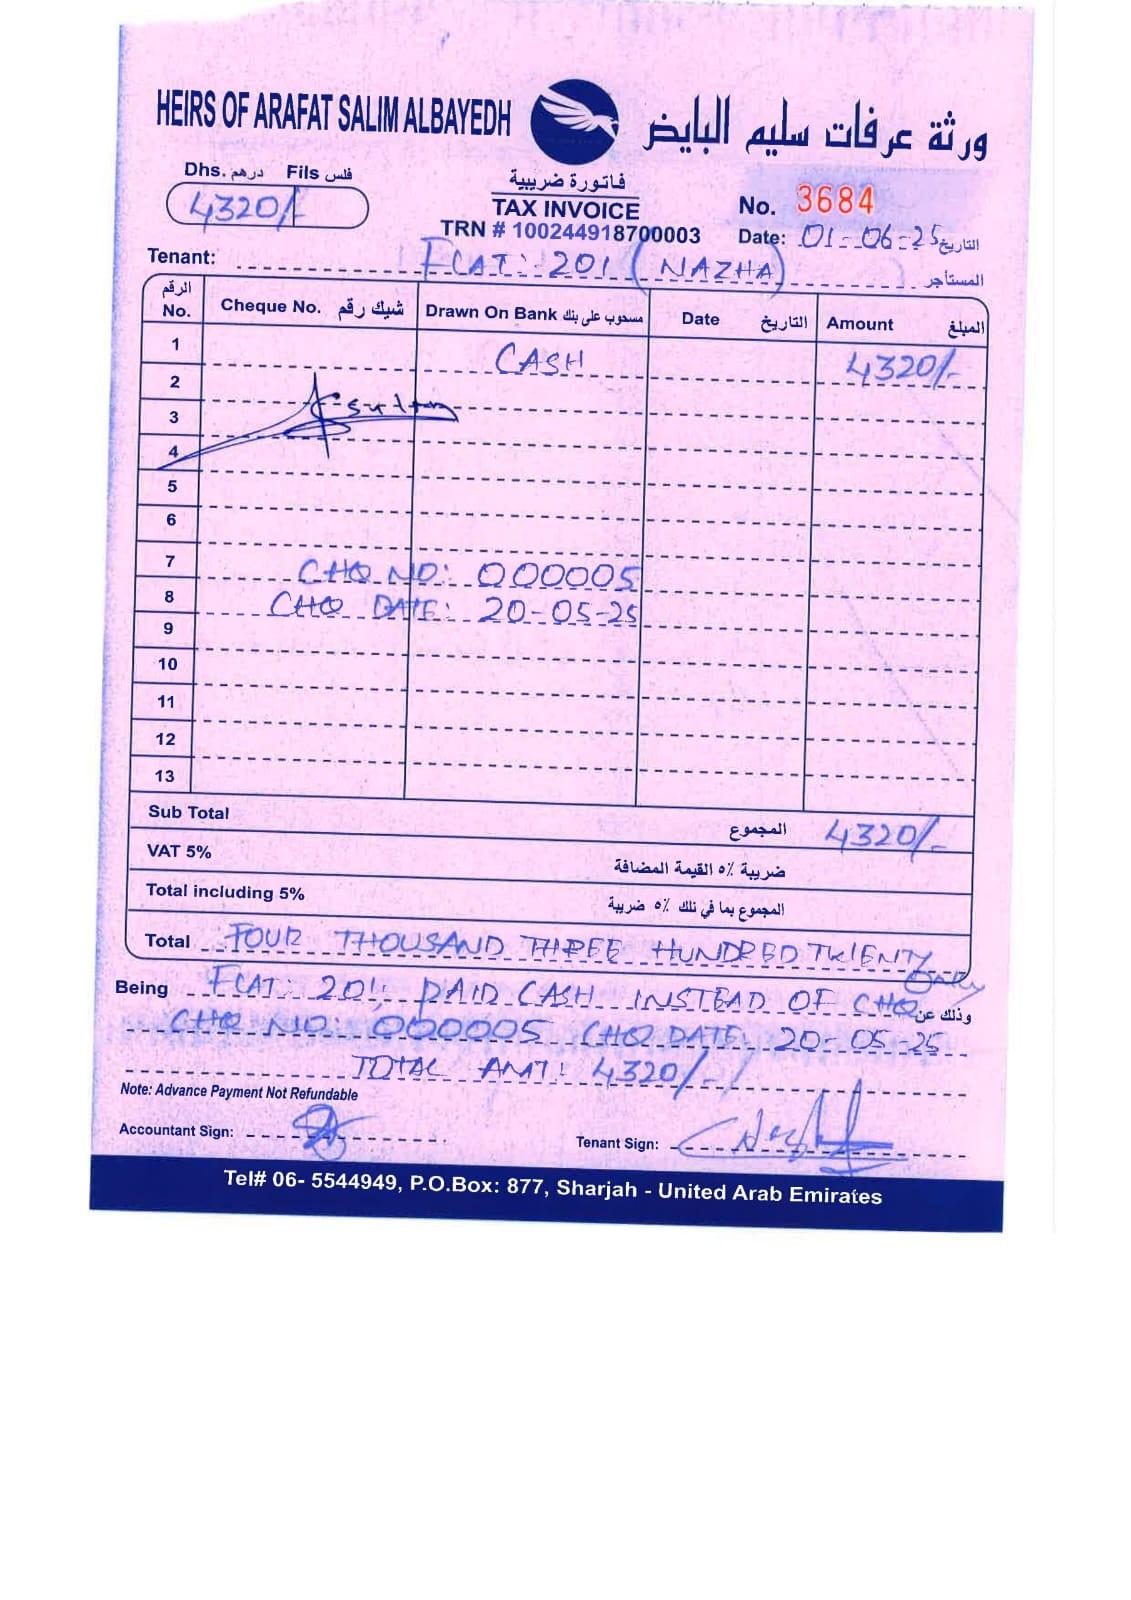 HEIRS OF ARAFAT SALIM ALBAYEDH
ورثة عرفات سليم البايض
Dhs. درهم Fils فلس
4320/-
فاتورة ضريبية
TAX INVOICE
TRN # 100244918700003
No. 3684
Date: 01-06-25 التاريخ
Tenant: FLAT: 201 (NAZHA) المستأجر
الرقم No. Cheque No. شيك رقم Drawn On Bank مسحوب على بنك Date التاريخ Amount المبلغ
1 CASH 4320/-
2
3
4
5
6
7 CHQ NO: 000005
8 CHQ DATE: 20-05-25
9
10
11
12
13
Sub Total المجموع 4320/-
VAT 5% ضريبة ٥٪ القيمة المضافة
Total including 5% المجموع بما في ذلك ٥٪ ضريبة
Total FOUR THOUSAND THREE HUNDRED TWENTY ONLY
Being FLAT: 201, PAID CASH INSTEAD OF CHQ وذلك عن
CHQ NO: 000005 CHQ DATE: 20-05-25
TOTAL AMT: 4320/-
Note: Advance Payment Not Refundable
Accountant Sign:
Tenant Sign:
Tel# 06- 5544949, P.O.Box: 877, Sharjah - United Arab Emirates